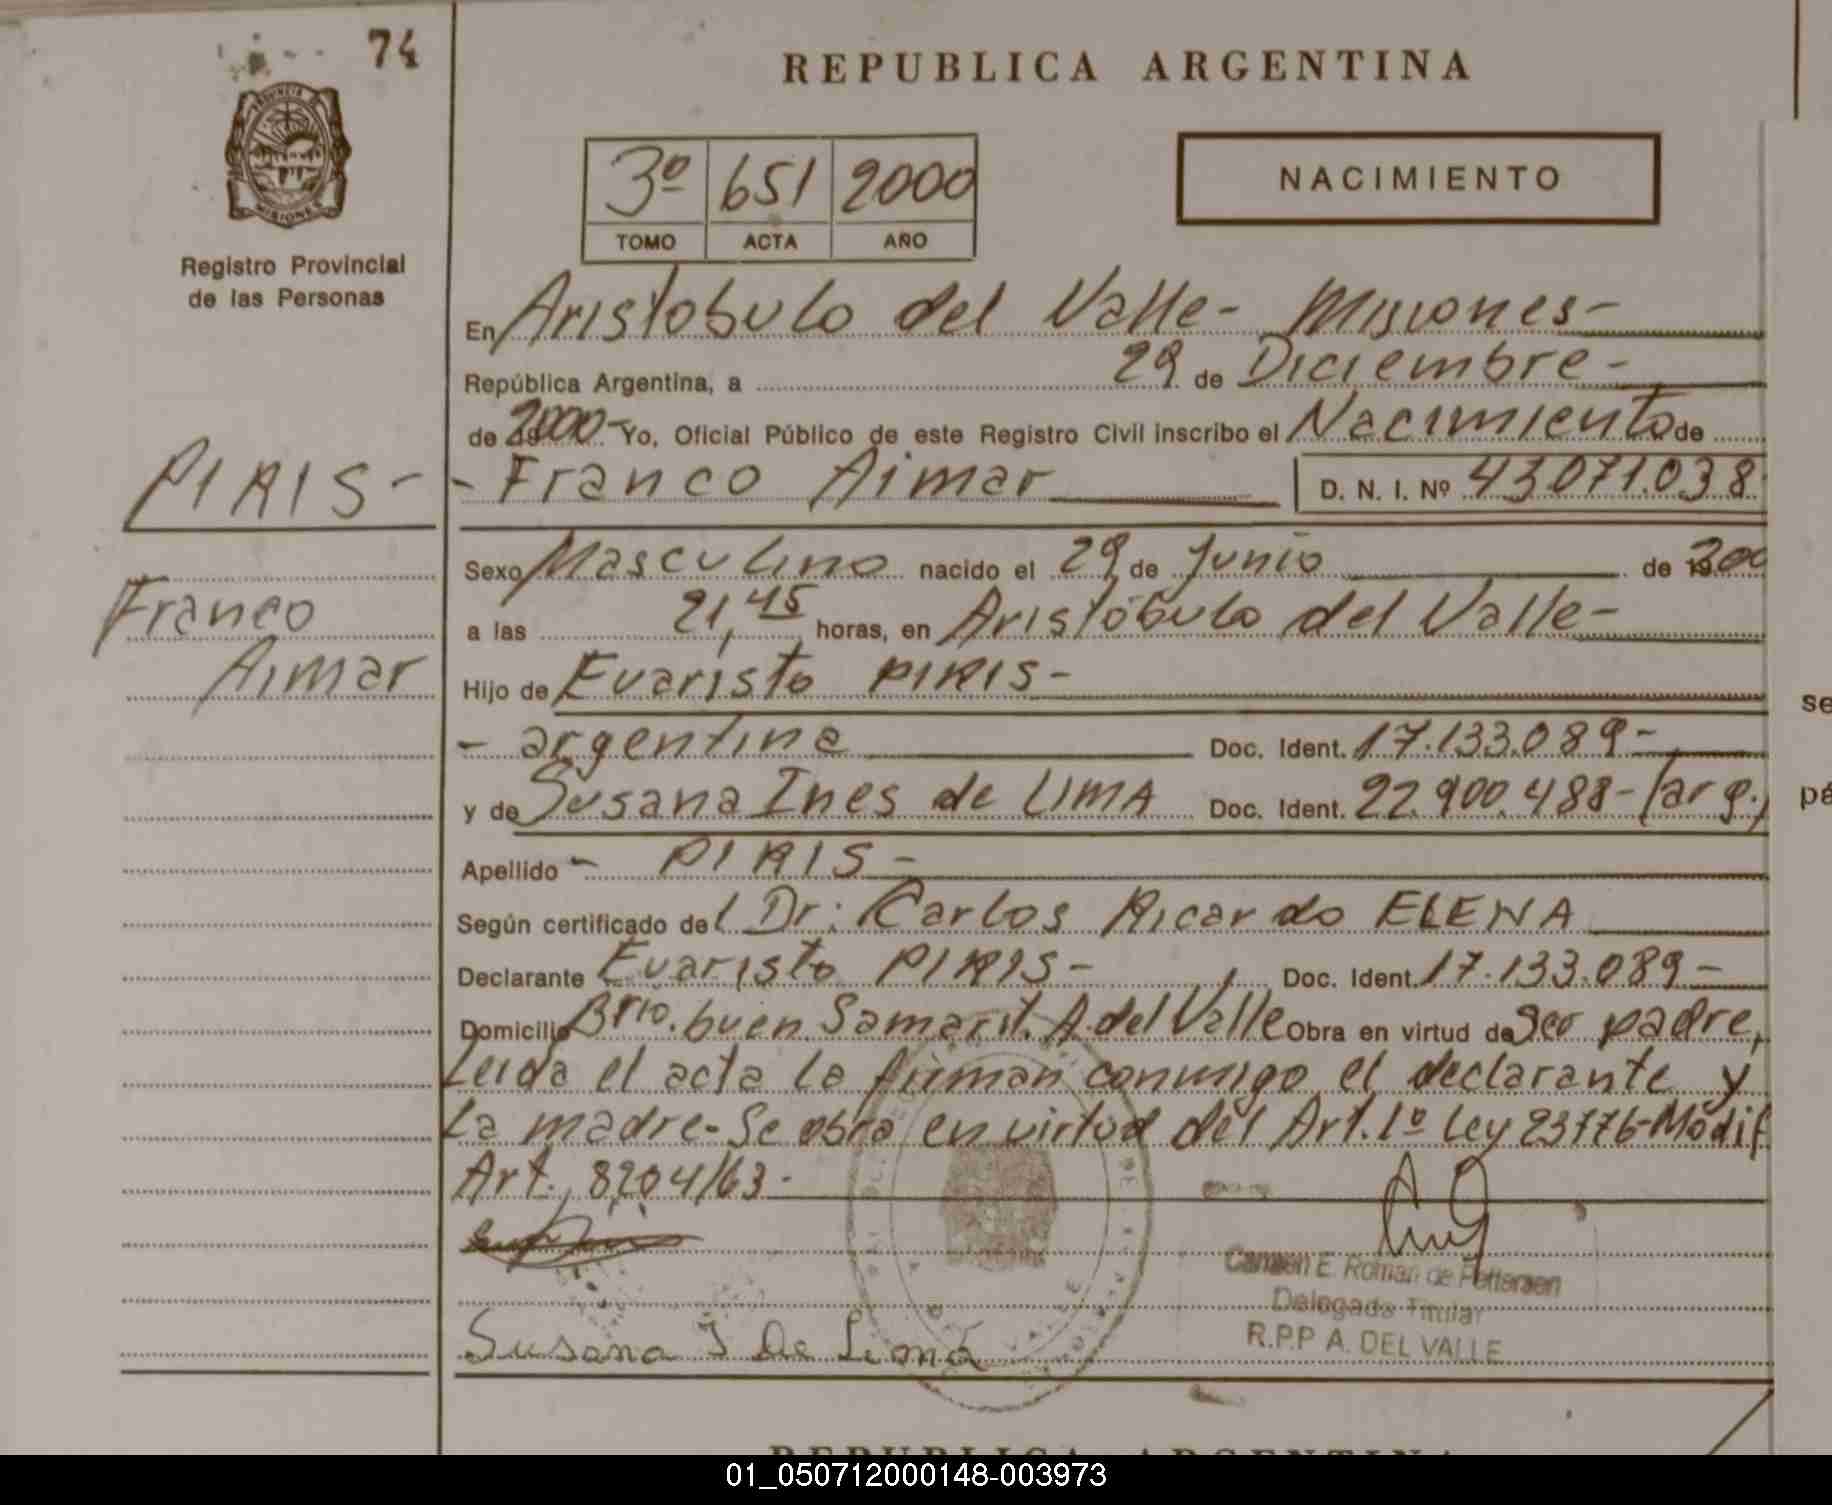 74
REPUBLICA ARGENTINA
PROVINCIA DE
MISIONES
Registro Provincial
de las Personas
3º 651 2000
TOMO ACTA AÑO
NACIMIENTO
En Aristobulo del Valle- Misiones-
República Argentina, a 29 de Diciembre-
de 2000- Yo, Oficial Público de este Registro Civil inscribo el Nacimiento de
PIRIS- - Franco Aimar D. N. I. Nº 43071.038
Sexo Masculino nacido el 29 de Junio de 19 200
Franco
a las 21,45 horas, en Aristóbulo del Valle-
Aimar
Hijo de Evaristo PIRIS-
- argentina Doc. Ident. 17.133.089-
y de Susana Ines de LIMA Doc. Ident. 22.900.488-(arg.)
Apellido - PIRIS-
Según certificado del Dr: Carlos Ricardo ELENA
Declarante Evaristo PIRIS- Doc. Ident. 17.133.089-
Domicilio Brio. buen Samarit. A. del Valle Obra en virtud de Ser padre,
Leida el acta la firman conmigo el declarante y
La madre- Se obra en virtud del Art. 1º Ley 23776-Modif
Art. 8204/63-
Carmen E. Roman de Pettersen
Delegada Titular
R.P.P A. DEL VALLE
Susana I De Lima
se
pá
REPUBLICA ARGENTINA
01_050712000148-003973